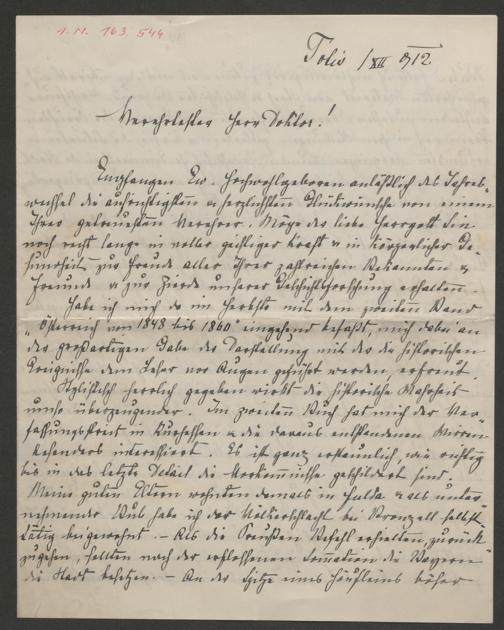 A. N. 163.544
Tolis 1/XII 912
Verehrtester Herr Doktor!
Empfangen Ew. Hochwohlgeboren anläßlich des Jahres-
wechsel die aufrichtigsten u herzlichsten Glückwünsche von einem
Ihrer getreuesten Verehrer. Möge der liebe Herrgott Sie
noch recht lange in voller geistiger Kraft u in körperlicher Ge-
sundheit zur Freude aller Ihrer zahlreichen Bekannten u
Freunde u zur Zierde unserer Geschichtsforschung erhalten.
Habe ich mich da im Herbste mit dem zweiten Band
„Österreich von 1848 bis 1860" eingehend befaßt, mich dabei an
der großartigen Gabe der Darstellung mit der die historischen
Ereignisse dem Leser vor Augen geführt werden, erfreut
Stylistisch herrlich gegeben wirkt die historische Wahrheit
umso überzeugender. Im zweiten Buch hat mich der Ver-
fassungsstreit in Kurhessen u die daraus entstandenen Wirren
besonders interessiert. Es ist ganz erstaunlich, wie richtig
bis in das letzte Detail die Vorkommnisse geschildert sind.
Meine guten Eltern wohnten damals in Fulda u als unter-
nehmender Bub habe ich der Völkerschlacht bei Bronzell selbst-
tätig beigewohnt. – Als die Preußen Befehl erhielten, zurück-
zugehen, sollten nach der erflossenen die Bayern
die Stadt besetzen. – An der Spitze eines Häufleins böser